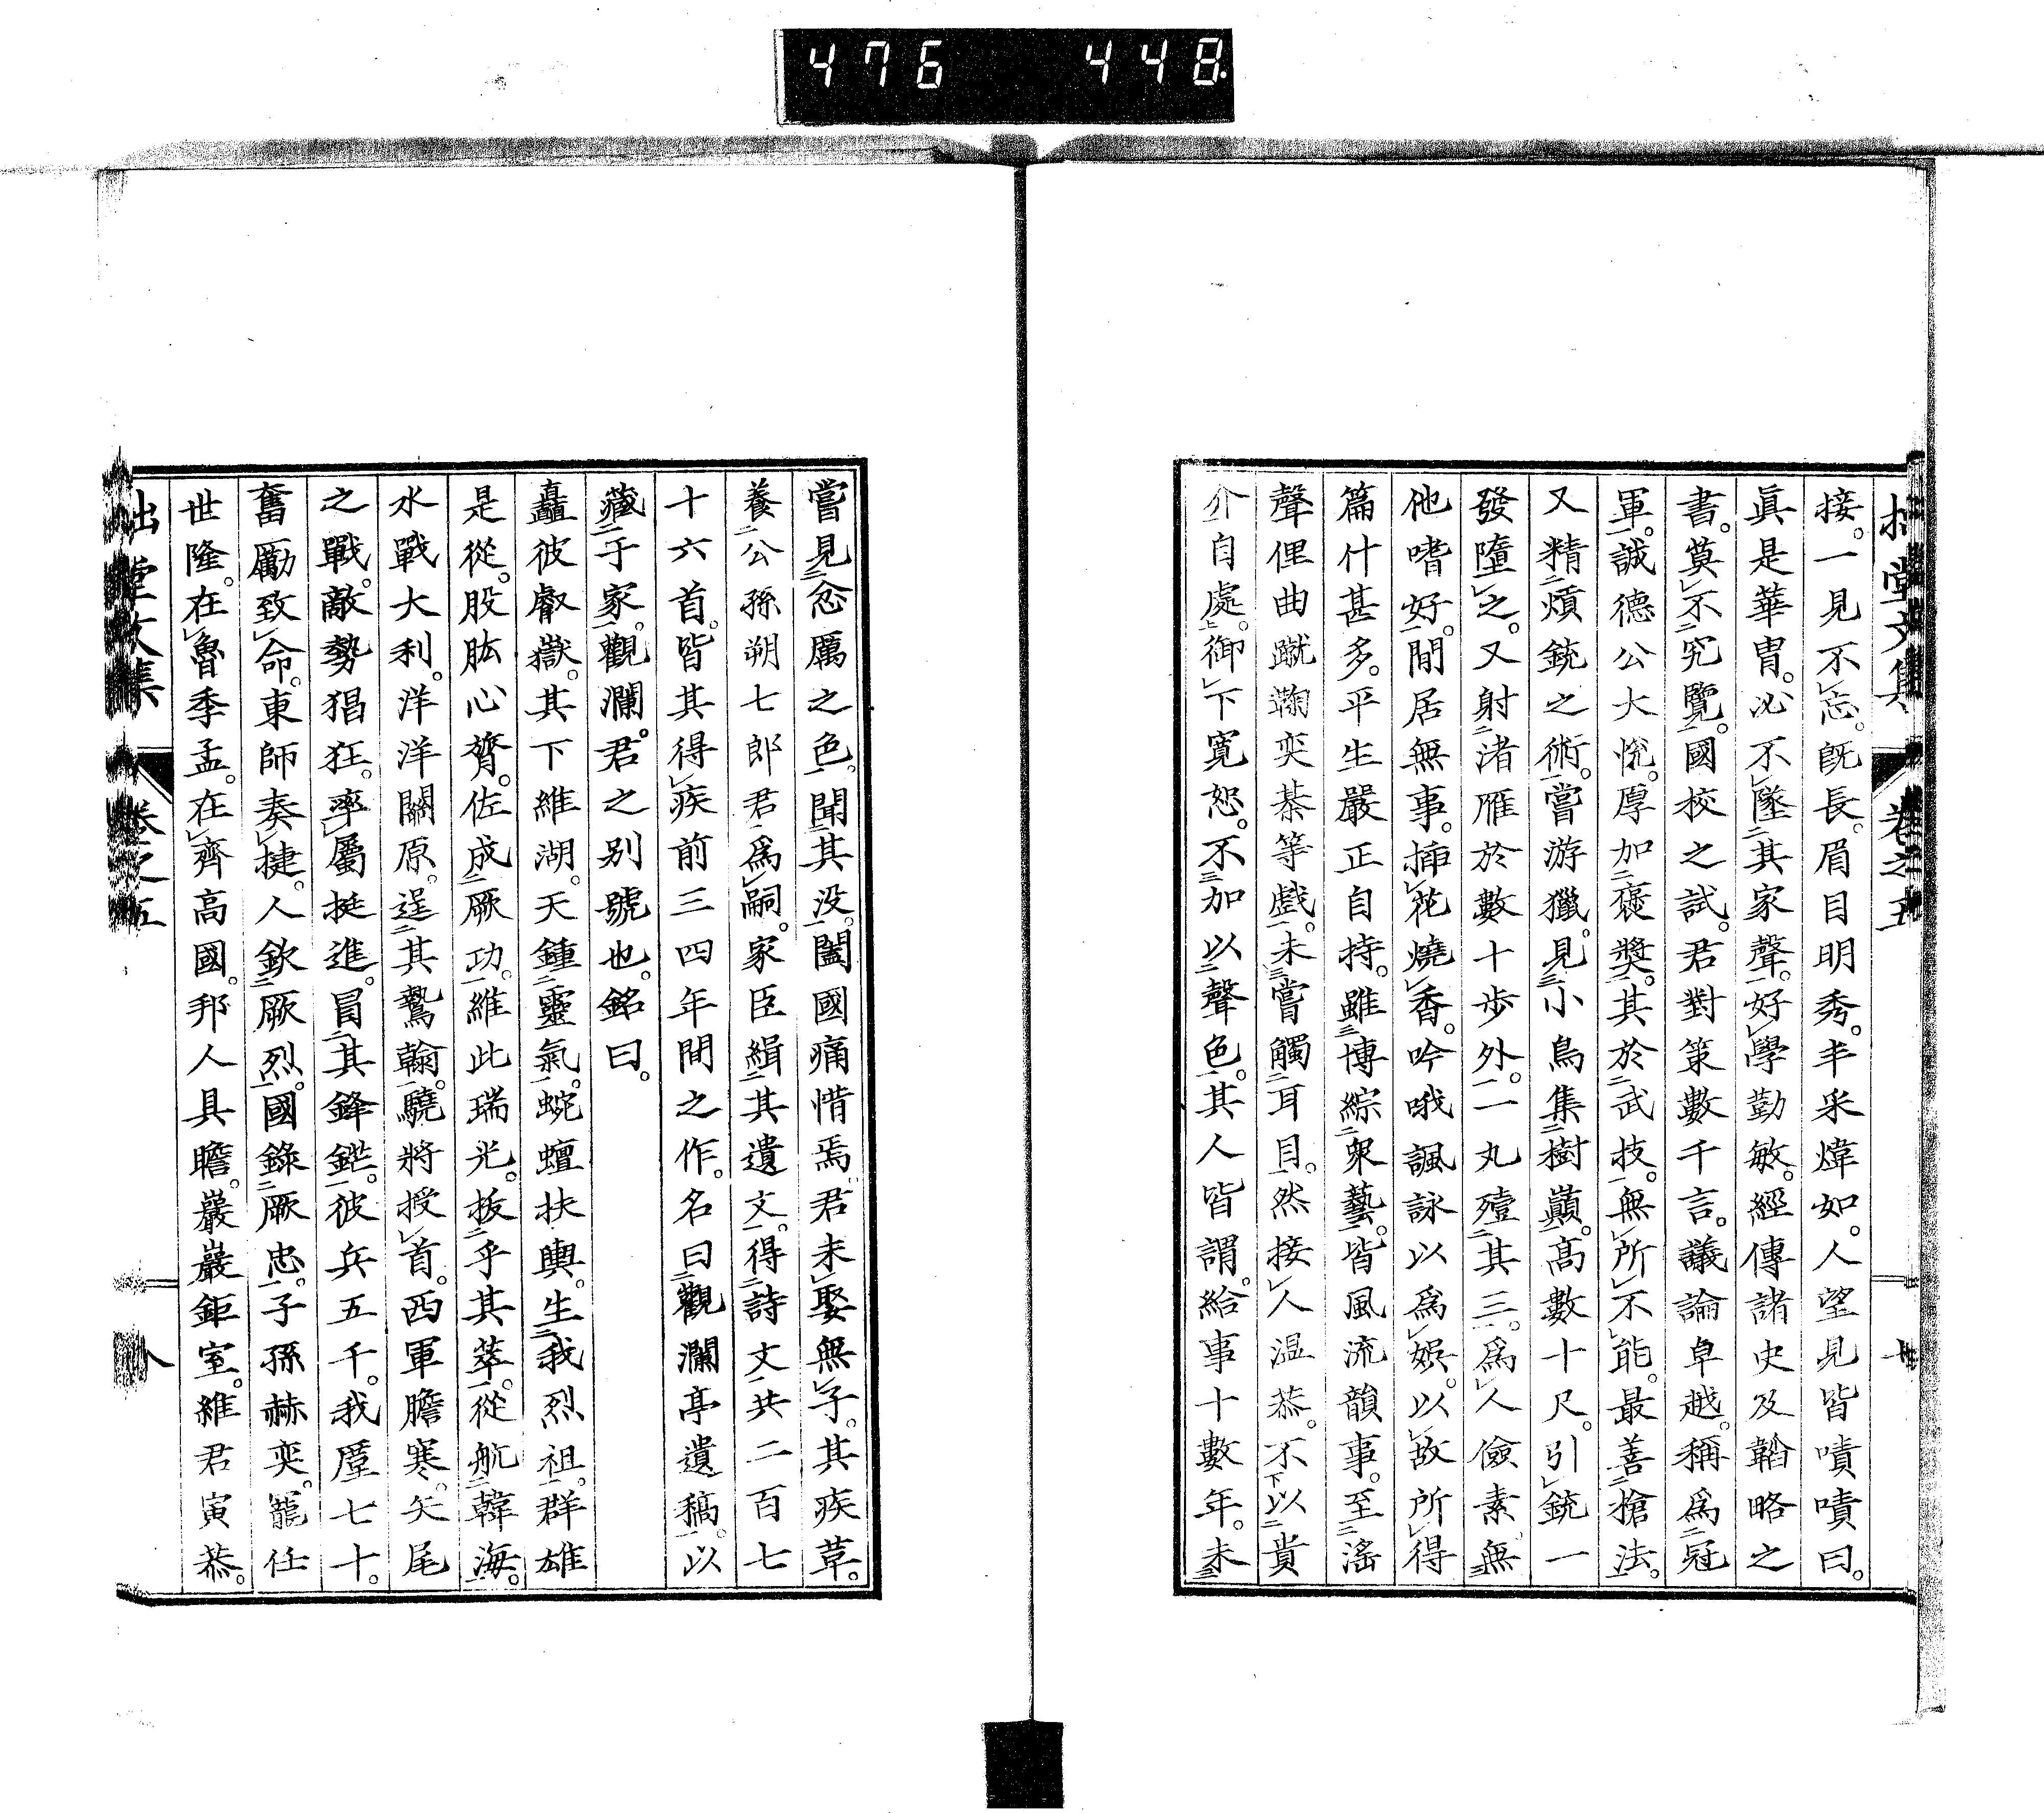 476 448
拙堂文集 卷之五 十
接。一見不忘。既長。眉目明秀。丰采煒如。人望見皆嘖嘖曰。
眞是華冑。必不墜其家聲。好學勤敏。經傳諸史及韜略之
書。莫不究覽。國校之試。君對策數千言。議論卓越。稱爲冠
軍。誠德公大悅。厚加褒奬。其於武技。無所不能。最善搶法。
又精熕銃之術。嘗游獵。見小鳥集樹巓。高數十尺。引銃一
發墮之。又射渚雁於數十步外。一丸殪其三。爲人儉素無
他嗜好。間居無事。揷花燒香。吟哦諷詠以爲娛。以故所得
篇什甚多。平生嚴正自持。雖博綜衆藝。皆風流韻事。至滛
聲俚曲蹴鞠奕棊等戲。未嘗觸耳目。然接人温恭。不以貴
介自處。御下寬恕。不加以聲色。其人皆謂。給事十數年。未
嘗見忿厲之色。聞其没。闔國痛惜焉。君未娶無子。其疾革。
養公孫朔七郎君爲嗣。家臣緝其遺文。得詩文共二百七
十六首。皆其得疾前三四年間之作。名曰觀瀾亭遺稿。以
藏于家。觀瀾。君之別號也。銘曰。
矗彼叡嶽。其下維湖。天鍾靈氣。蜿蟺扶輿。生我烈祖。群雄
是從。股肱心膂。佐成厥功。維此瑞光。拔乎其萃。從航韓海。
水戰大利。洋洋關原。逞其鷙翰。驍將授首。西軍膽寒。矢尾
之戰。敵勢猖狂。率屬挺進。冒其鋒鋩。彼兵五千。我廑七十。
奮勵致命。東師奏捷。人欽厥烈。國錄厥忠。子孫赫奕。寵任
世隆。在魯季孟。在齊高國。邦人具瞻。巖巖鉅室。維君寅恭。
拙堂文集 卷之五 八